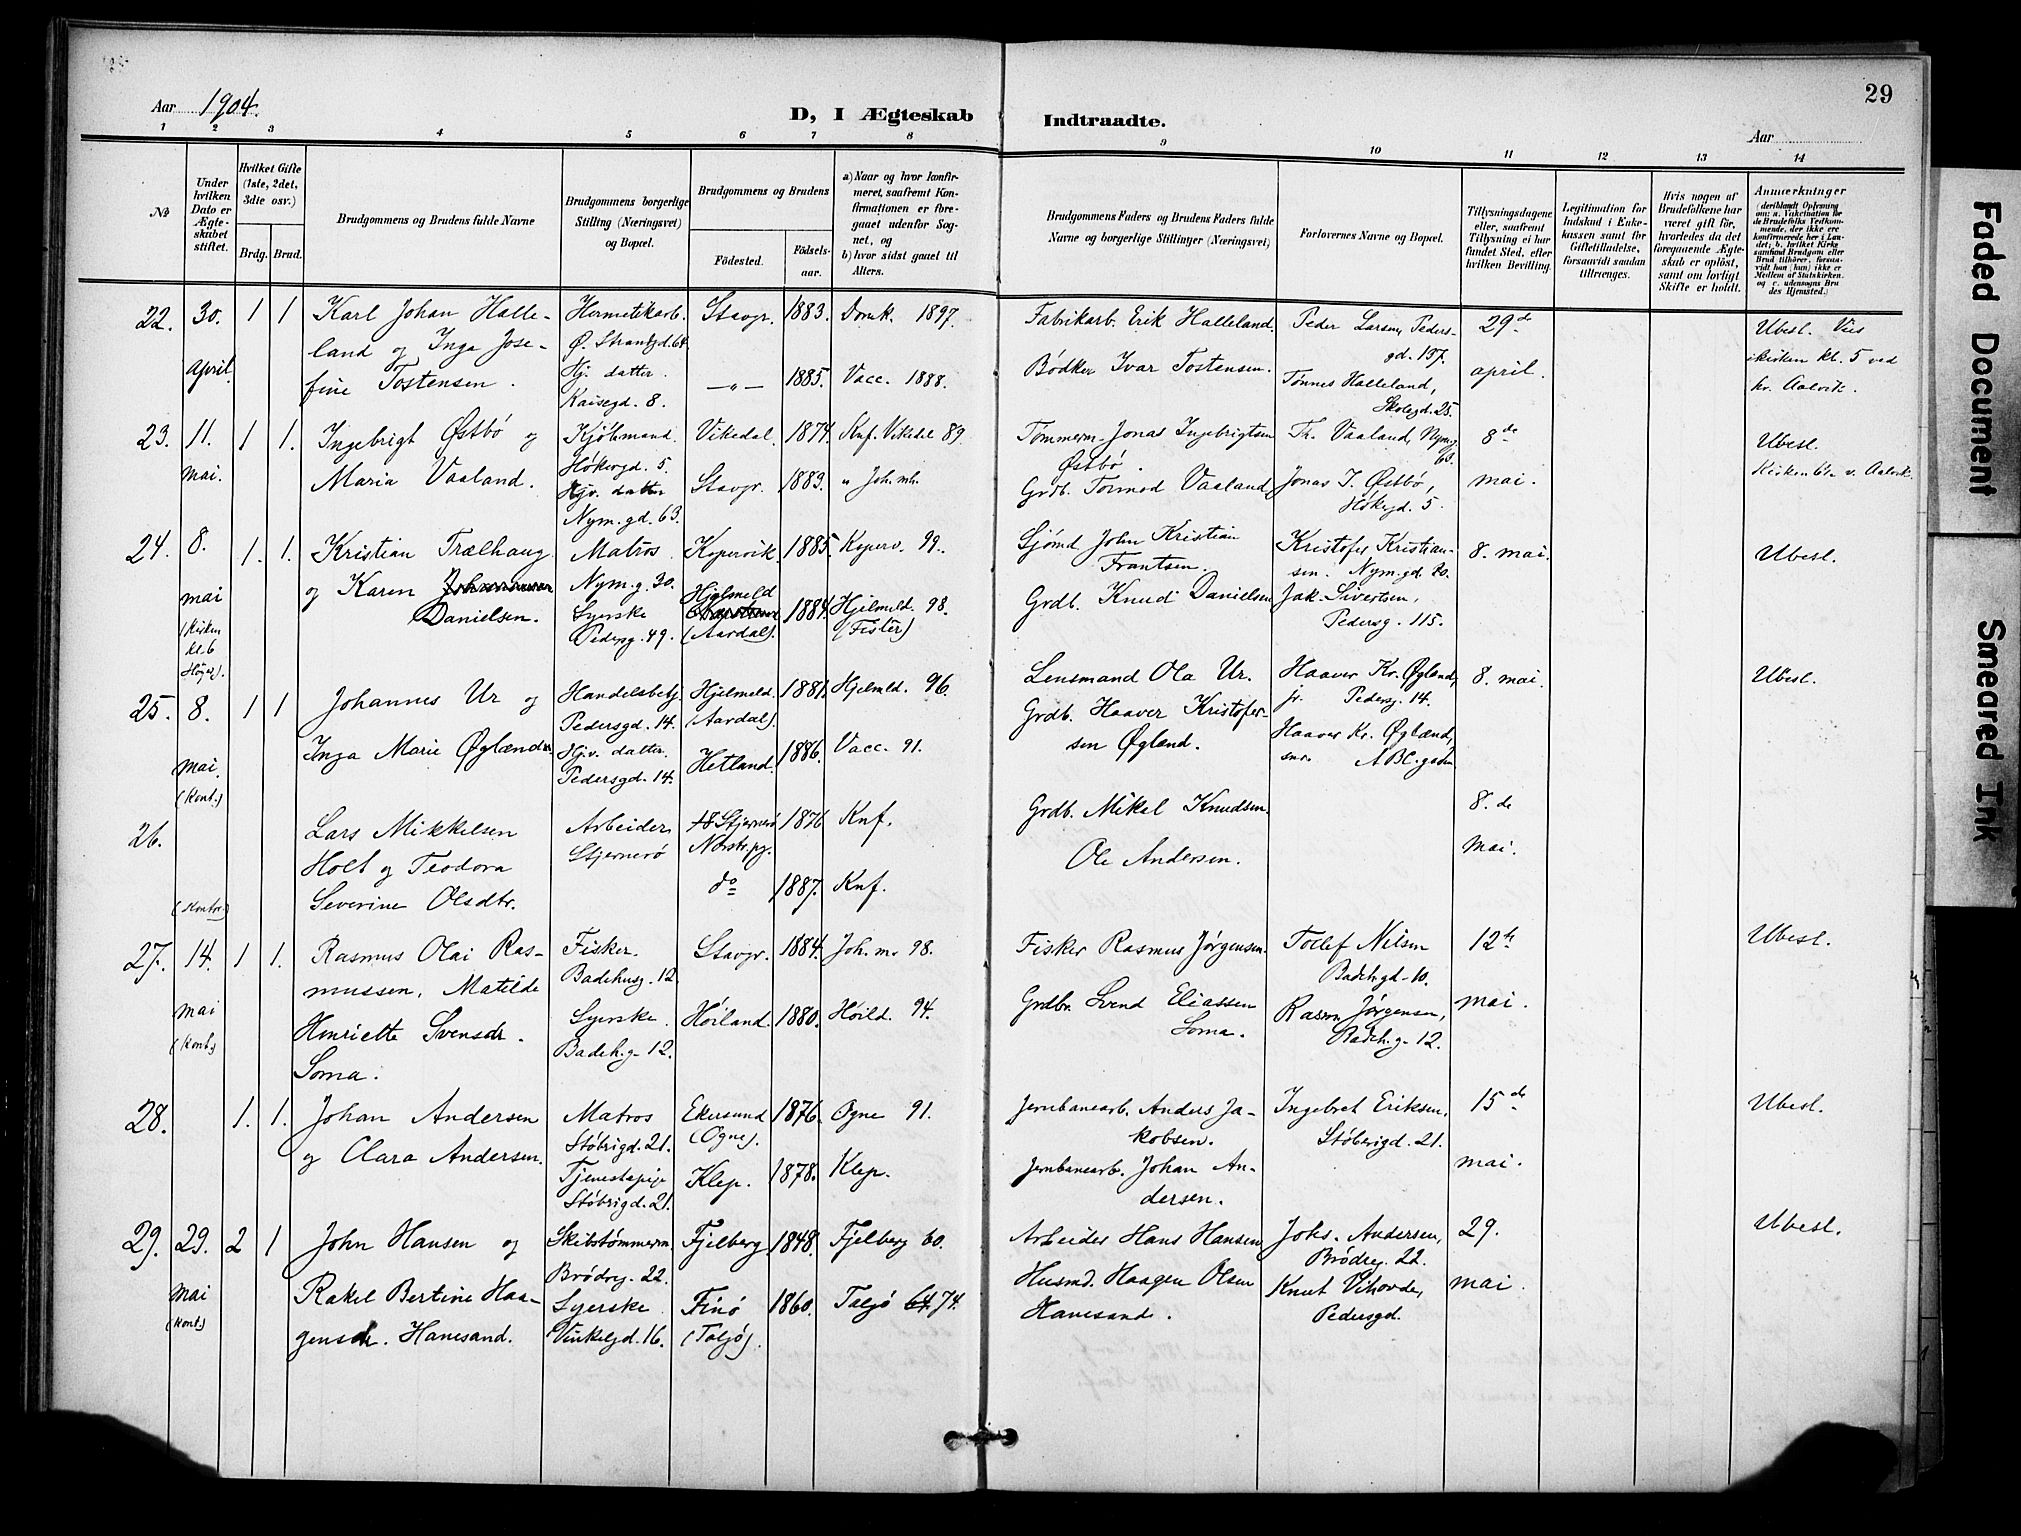 29
Aar 1904.
D, I Ægteskab Indtraadte.
Aar
1 2 3 4 5 6 7 8 9 10 11 12 13 14
No
Under hvilken Dato er Ægteskabet stiftet.
Hvilket Gifte (1ste, 2det, 3die osv.)
Brdg. Brud.
Brudgommens og Brudens fulde Navne
Brudgommens borgerlige Stilling (Næringsvei) og Bopæl.
Brudgommens og Brudens
Födested.
Födsels-aar.
a) Naar og hvor konfirmeret, saafremt Konfirmationen er foregaaet udenfor Sognet, og
b) hvor sidst gaaet til Alters.
Brudgommens Faders og Brudens Faders fulde Navne og borgerlige Stillinger (Næringsvei)
Forlovernes Navne og Bopæl.
Tillysningsdagene eller, saafremt Tillysning ei har fundet Sted, efter hvilken Bevilling.
Legitimation for Indskud i Enkekassen samt for Giftetilladelse, forsaavidt saadan tiltrænges.
Hvis nogen af Brudefolkene har været gift för, hvorledes da det foregaaende Ægteskab er oplöst, samt om lovligt Skifte er holdt.
Anmerkninger
(deriblandt Oplysning om: a. Vakcination for de Brudefolks Vedkommende, der ikke ere konfirmerede her i Landet; b. hvilket Kirkesamfund Brudgom eller Brud tilhörer, forsaavidt han (hun) ikke er Medlem af Statskirken, og c. udensogns Brudes Hjemsted.)
22. 30. april. 1 1
Karl Johan Halle-
land og Inga Jose-
fine Tostensen.
Hermetikarb.
Ø. Strandgd. 64.
Hj. datter.
Kaisegd. 8.
Stavgr. 1883. Domk. 1897.
—„— 1885. Vacc. 1888.
Fabrikarb. Erik Halleland.
Bødker Ivar Tostensen.
Peder Larsen, Peders-
gd. 137.
Tönnes Halleland,
Skolegd. 25.
29de
april.
Ubesl. Vies
i kirken kl. 5 ved
hr. Aalvik.
23. 11. mai. 1 1.
Ingebrigt Østbö og
Maria Vaaland.
Kjöbmand.
Hökergd. 5.
Hjv. datter
Nym.gd. 63.
Vikedal. 1874. Knf. Vikedal 89.
Stavgr. 1883. „ Joh. mh.
Tömmerm. Jonas Ingebrigtsen
Østbö.
Grdb. Tormod Vaaland
Th. Vaaland, Nymg.
63.
Jonas I. Østbö,
Hökergd. 5.
8de
mai.
Ubesl.
Kirken 6 v. Aalvik.
24. 8. mai (Kirken kl. 6 Höyer). 1. 1.
Kristian Trælhaug
og Karen
Danielsen.
Matros
Nym.g. 30.
Syerske
Pedersg. 49.
Kopervik 1885. Koperv. 99.
Hjelmeld
(Aardal). 1884. Hjelmeld. 98.
(Fister)
Sjömd. John Kristian
Frantsen.
Grdb. Knud Danielsen
Kristofer Kristian-
sen. Nym.gd. 20.
Jak. Sivertsen,
Pedersg. 115.
8. mai.
Ubesl.
25. 8. mai. (Kont.) 1 1
Johannes Ur og
Inga Marie Øglænd.
Handelsbetj.
Pedersgd. 14.
Hjv. datter.
Pedersgd. 14.
Hjelmeld. 1881. Hjelmld. 96.
(Aardal).
Hetland. 1886. Vacc. 91.
Lensmand Ola Ur.
Grdb. Haaver Kristofer-
sen Øgland.
Haaver Kr. Øglænd,
jr. Pedersg. 14.
Haaver Kr. Øglænd,
snr. ABC. gaden
8. mai.
Ubesl.
26. (Kontor)
Lars Mikkelsen
Holt og Teodora
Severine Olsdtr.
Arbeider
Stjernerö
Stjernerö 1876 Knf.
Nerstr. pg.
do 1887. Knf.
Grdb. Mikal Knudsen.
Ole Andersen.
8. de
mai.
27. 14. mai (Kont.) 1 1.
Rasmus Olai Ras-
mussen, Matilde
Henriette Svensdr.
Soma.
Fisker.
Badehusg. 12.
Syerske.
Badeh.g. 12.
Stavgr. 1884. Joh. m. 98.
Höiland. 1880. Höild. 94.
Fisker Rasmus Jörgensen.
Grdbr. Svend Eliassen
Soma.
Tollef Nilsen
Badeh.gd. 10.
Rasm. Jörgensen,
Badeh.g. 12.
12te
mai.
Ubesl.
28. 1. 1.
Johan Andersen
og Clara Andersen.
Matros
Stöbrigd. 21.
Tjenestepige
Stöbrigd. 21.
Ekersund 1876. Ogne 91.
(Ogne).
Klep. 1878. Klep.
Jernbanearb. Anders Ja-
kobsen.
Jernbanearb. Johan An-
dersen.
Ingebret Eriksen,
Stöberigd. 21.
15de
mai.
Ubesl.
29. 29. mai (Kont.) 2 1
John Hansen og
Rakel Bertine Haa-
gensdr. Hanesand.
Skibstömmerm.
Brödreg. 22.
Syerske
Vinkelgd. 16.
Fjelberg 1848. Fjelberg 60.
Finö 1860. Taljö 64. 74.
(Taljö).
Arbeider Hans Hansen
Husmd. Haagen Olsen
Hanesand.
Johs. Andersen,
Brödreg. 22.
Knut Vihovde,
Pedersgd.
29.
mai.
Ubesl.
Faded Document
Smeared Ink